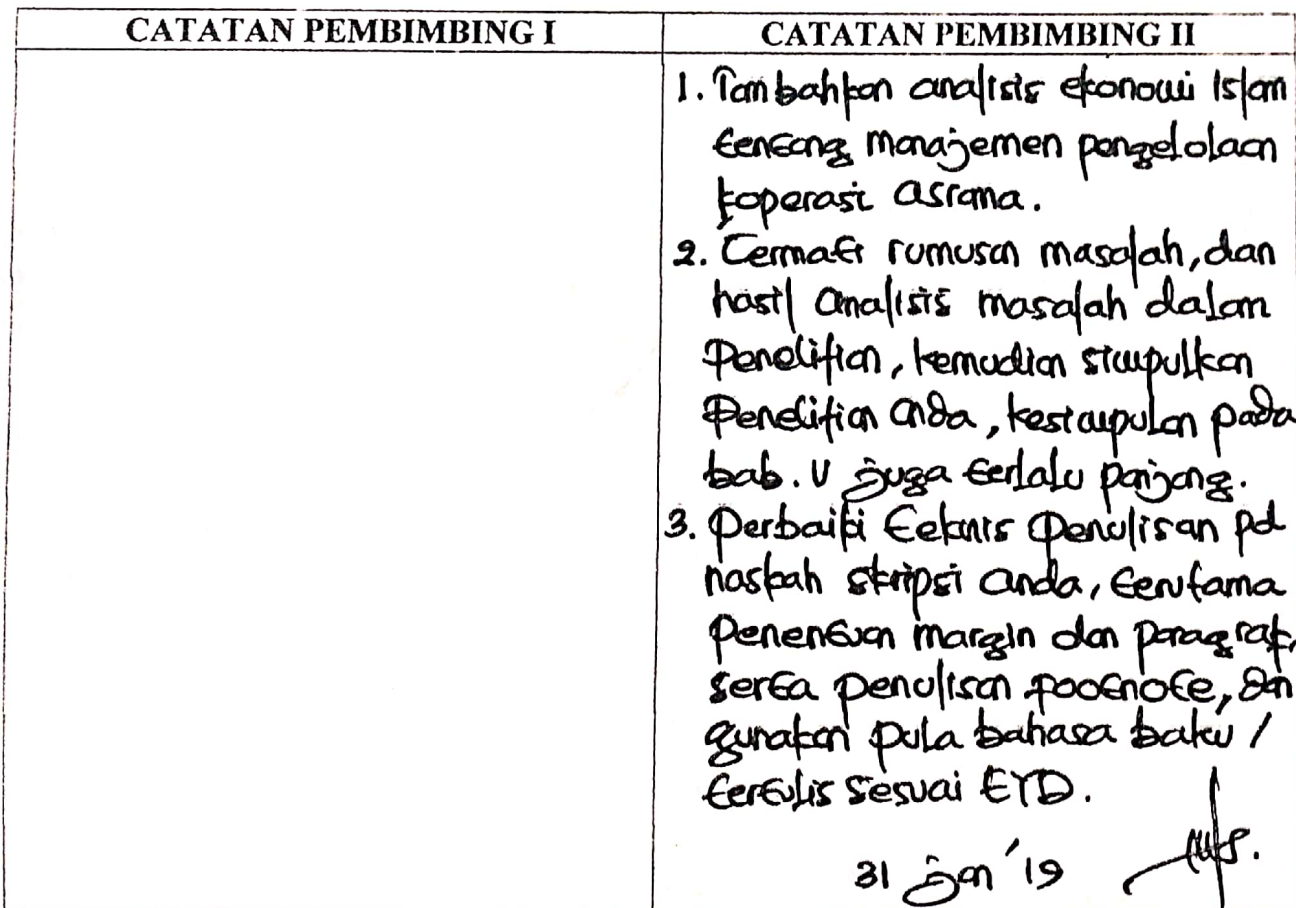 CATATAN PEMBIMBING I
CATATAN PEMBIMBING II
1. Tambahkan analisis ekonomi Islam
tentang manajemen pengelolaan
koperasi asrama.
2. Cermati rumusan masalah, dan
hasil analisis masalah dalam
penelitian, kemudian simpulkan
penelitian anda, kesimpulan pada
bab. V juga terlalu panjang.
3. Perbaiki teknis penulisan pd
naskah skripsi anda, terutama
penentuan margin dan paragraf,
serta penulisan footnote, dan
gunakan pula bahasa baku /
tertulis sesuai EYD.
31 jan '19